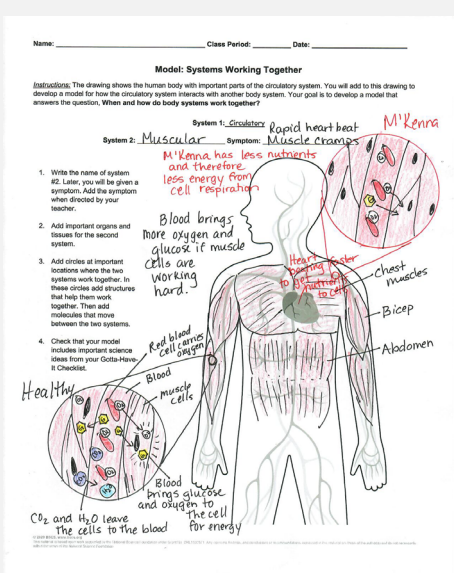 Name: Class Period: Date:
Model: Systems Working Together
Instructions: The drawing shows the human body with important parts of the circulatory system. You will add to this drawing to
develop a model for how the circulatory system interacts with another body system. Your goal is to develop a model that
answers the question, When and how do body systems work together?
System 1: Circulatory
Rapid heart beat
M'Kenna
System 2: Muscular Symptom: Muscle cramps
M'Kenna has less nutrients
and therefore
less energy from
cell respiration
1. Write the name of system
#2. Later, you will be given a
symptom. Add the symptom
when directed by your
teacher.
2. Add important organs and
tissues for the second
system.
3. Add circles at important
locations where the two
systems work together. In
these circles add structures
that help them work
together. Then add
molecules that move
between the two systems.
4. Check that your model
includes important science
ideas from your Gotta-Have-
It Checklist.
Blood brings
more oxygen and
glucose if muscle
cells are
working
hard.
Heart
beating faster
to get
nutrients
to cells
Chest
muscles
Bicep
Abdomen
Red blood
cell carries
oxygen
Blood
muscle
cells
Healthy
Blood
brings glucose
and oxygen to
the cell
for energy
CO2 and H2O leave
the cells to the blood